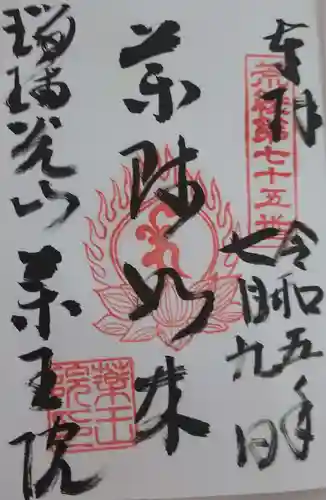 奉拝
荒綾第七十五番
令和五年
七月九日
薬師如来
瑠璃光山 薬王院
薬王院印